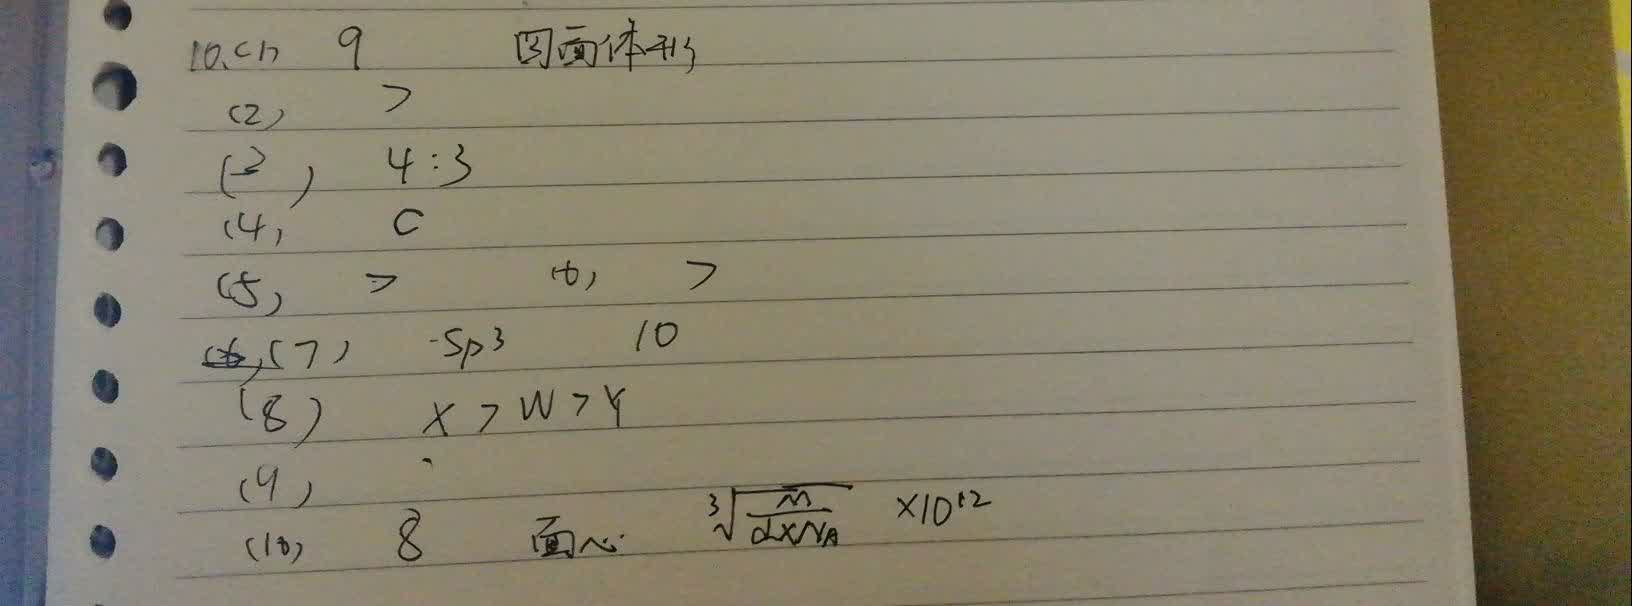 10.(1) 9 四面体形
(2) >
(3) 4:3
(4) C
(5) > (6) >
(7) sp3 10
(8) X > W > Y
(9)
(10) 8 面心 ³√(M/(d×NA)) ×10¹²